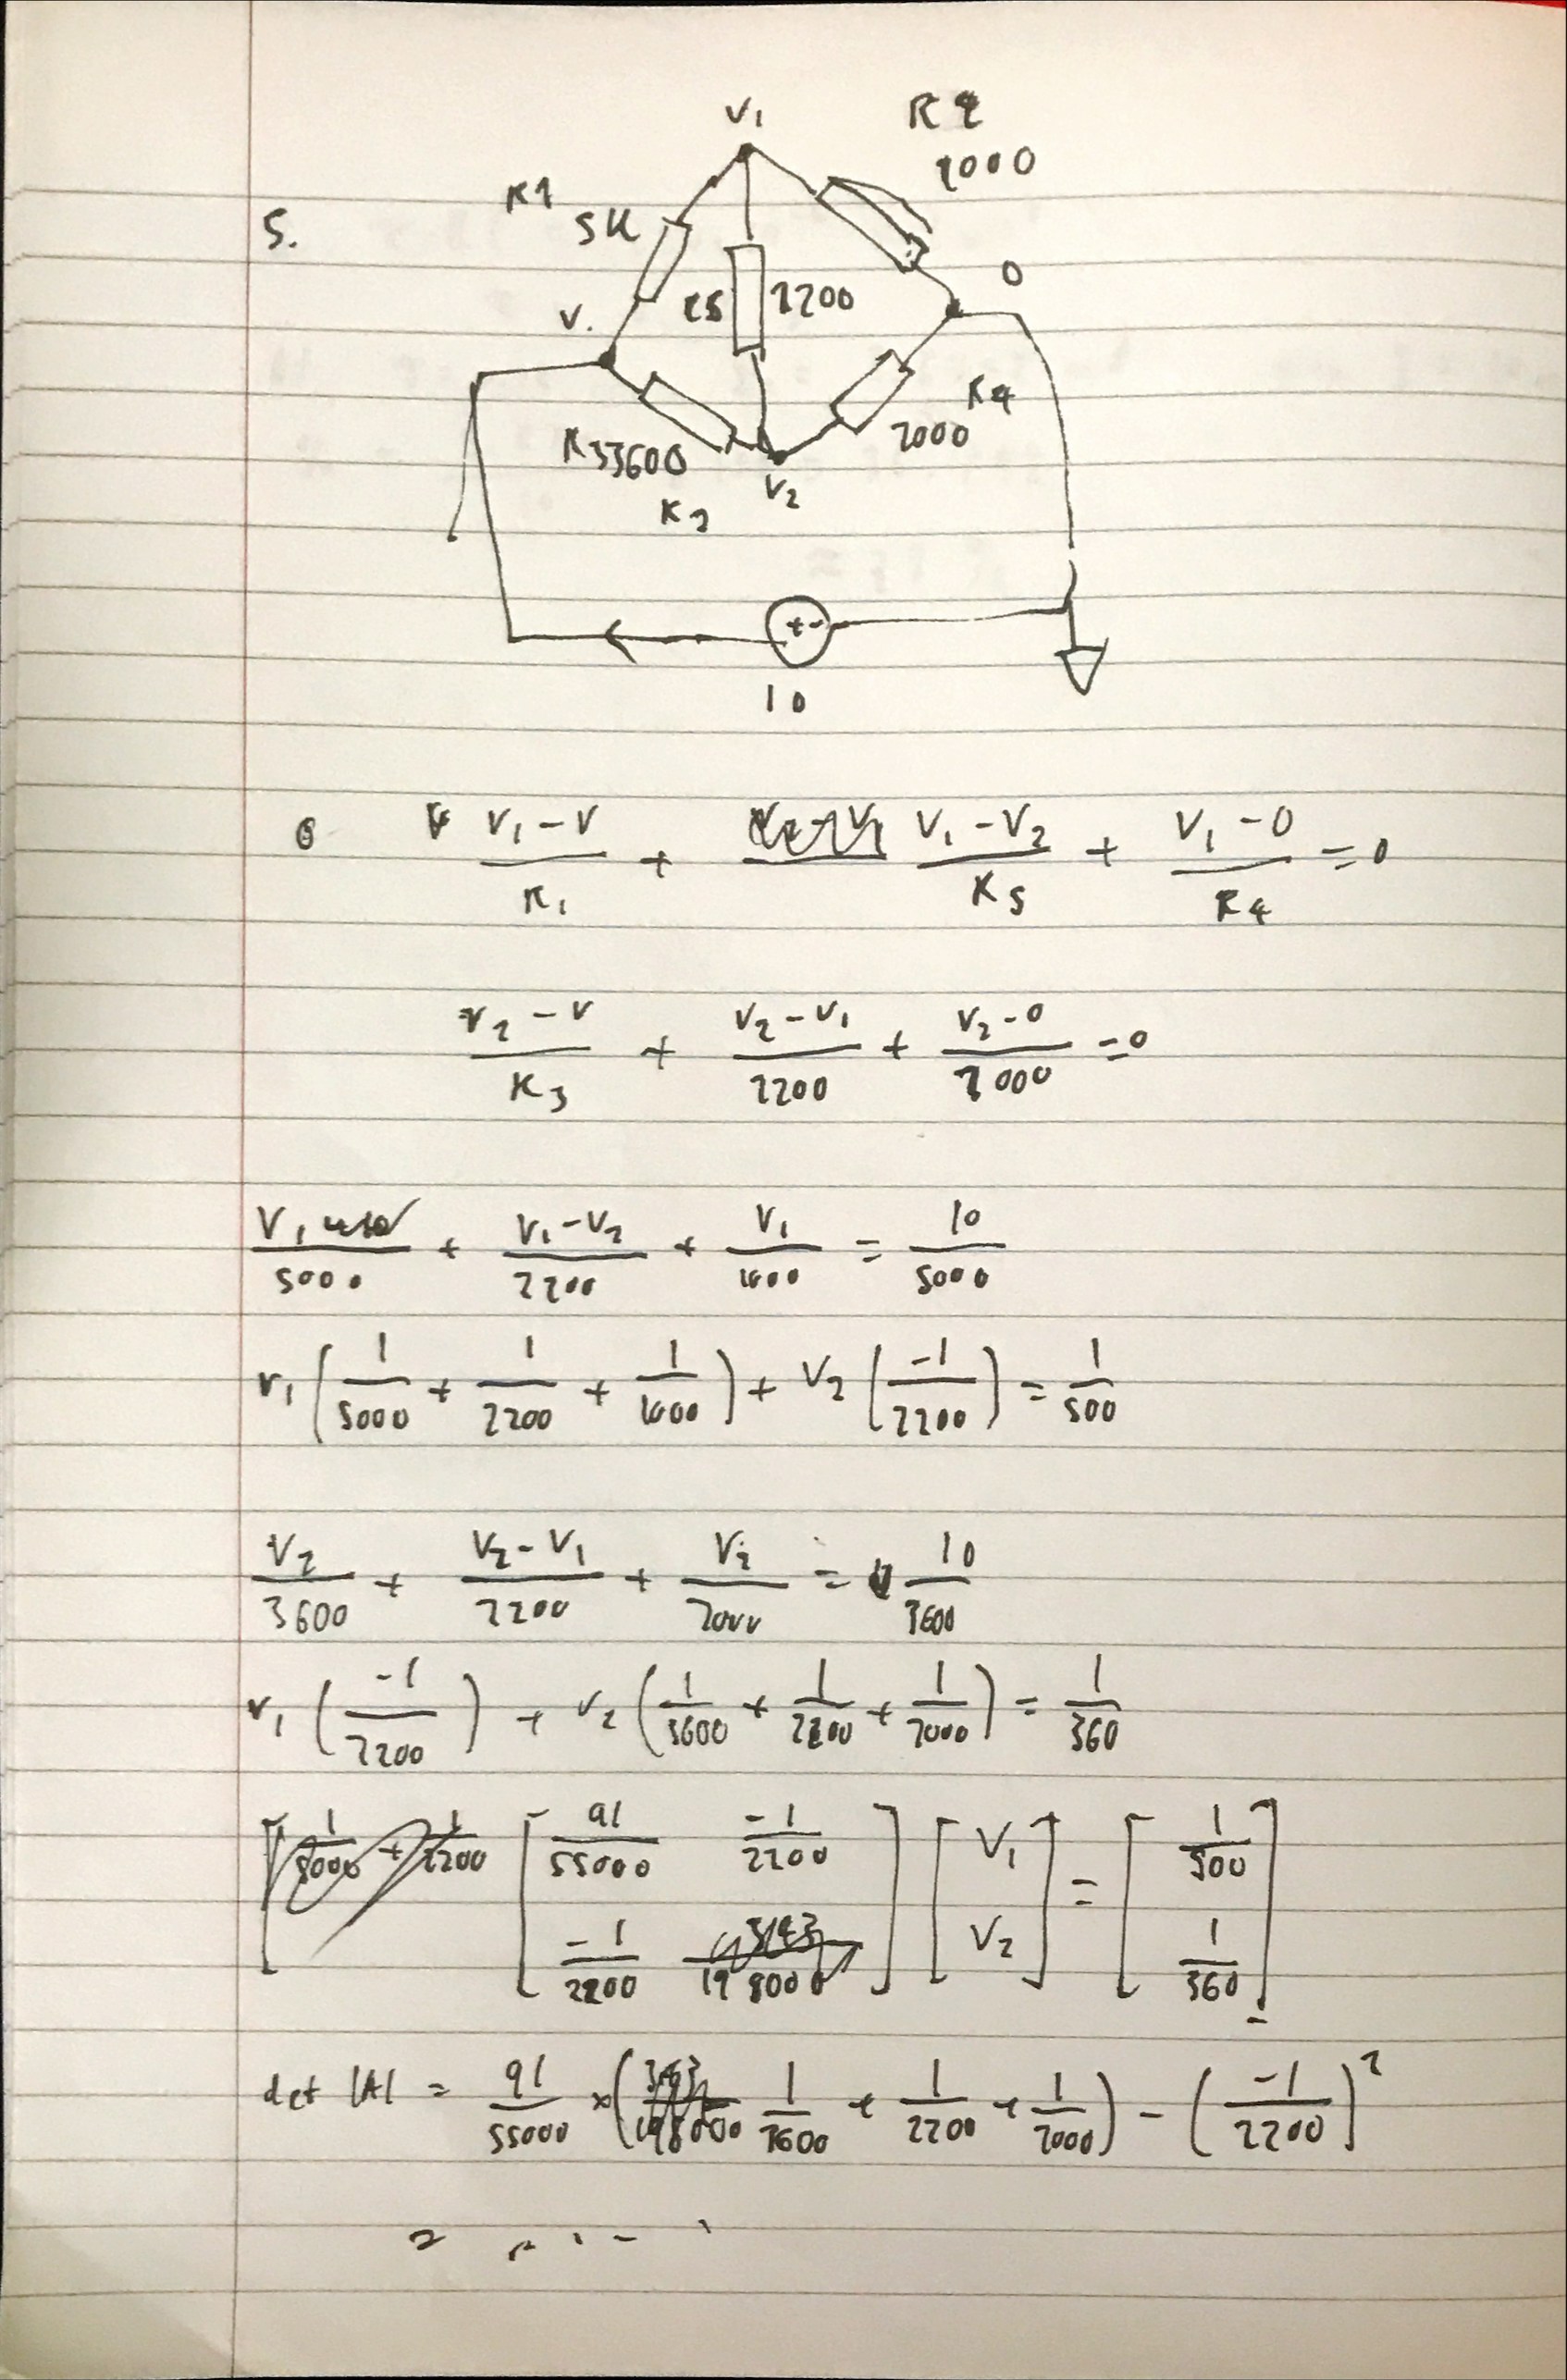 V1
R2
1000
R1
5K
5.
0
V.
R5
2200
R4
2000
R3 3600
V2
R3
+-
10
V1 - V / R1 + V1 - V2 / R5 + V1 - 0 / R4 = 0
V2 - V / R3 + V2 - V1 / 2200 + V2 - 0 / 2000 = 0
V1 / 5000 + V1 - V2 / 2200 + V1 / 1000 = 10 / 5000
V1 ( 1 / 5000 + 1 / 2200 + 1 / 1000 ) + V2 ( -1 / 2200 ) = 1 / 500
V2 / 3600 + V2 - V1 / 2200 + V2 / 2000 = 10 / 3600
V1 ( -1 / 2200 ) + V2 ( 1 / 3600 + 1 / 2200 + 1 / 2000 ) = 1 / 360
[ 91 / 55000 -1 / 2200 ] [ V1 ] = [ 1 / 500 ]
[ -1 / 2200 198000 ] [ V2 ] [ 1 / 360 ]
det |A| = 91 / 55000 × ( 1 / 3600 + 1 / 2200 + 1 / 2000 ) - ( -1 / 2200 )²
= ....